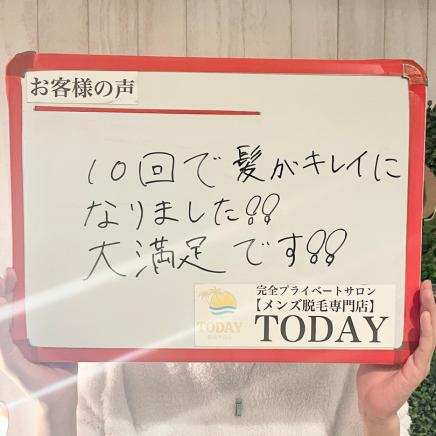 お客様の声
10回で髪がキレイに
なりました!!
大満足です!!
完全プライベートサロン
【メンズ脱毛専門店】
TODAY
TODAY